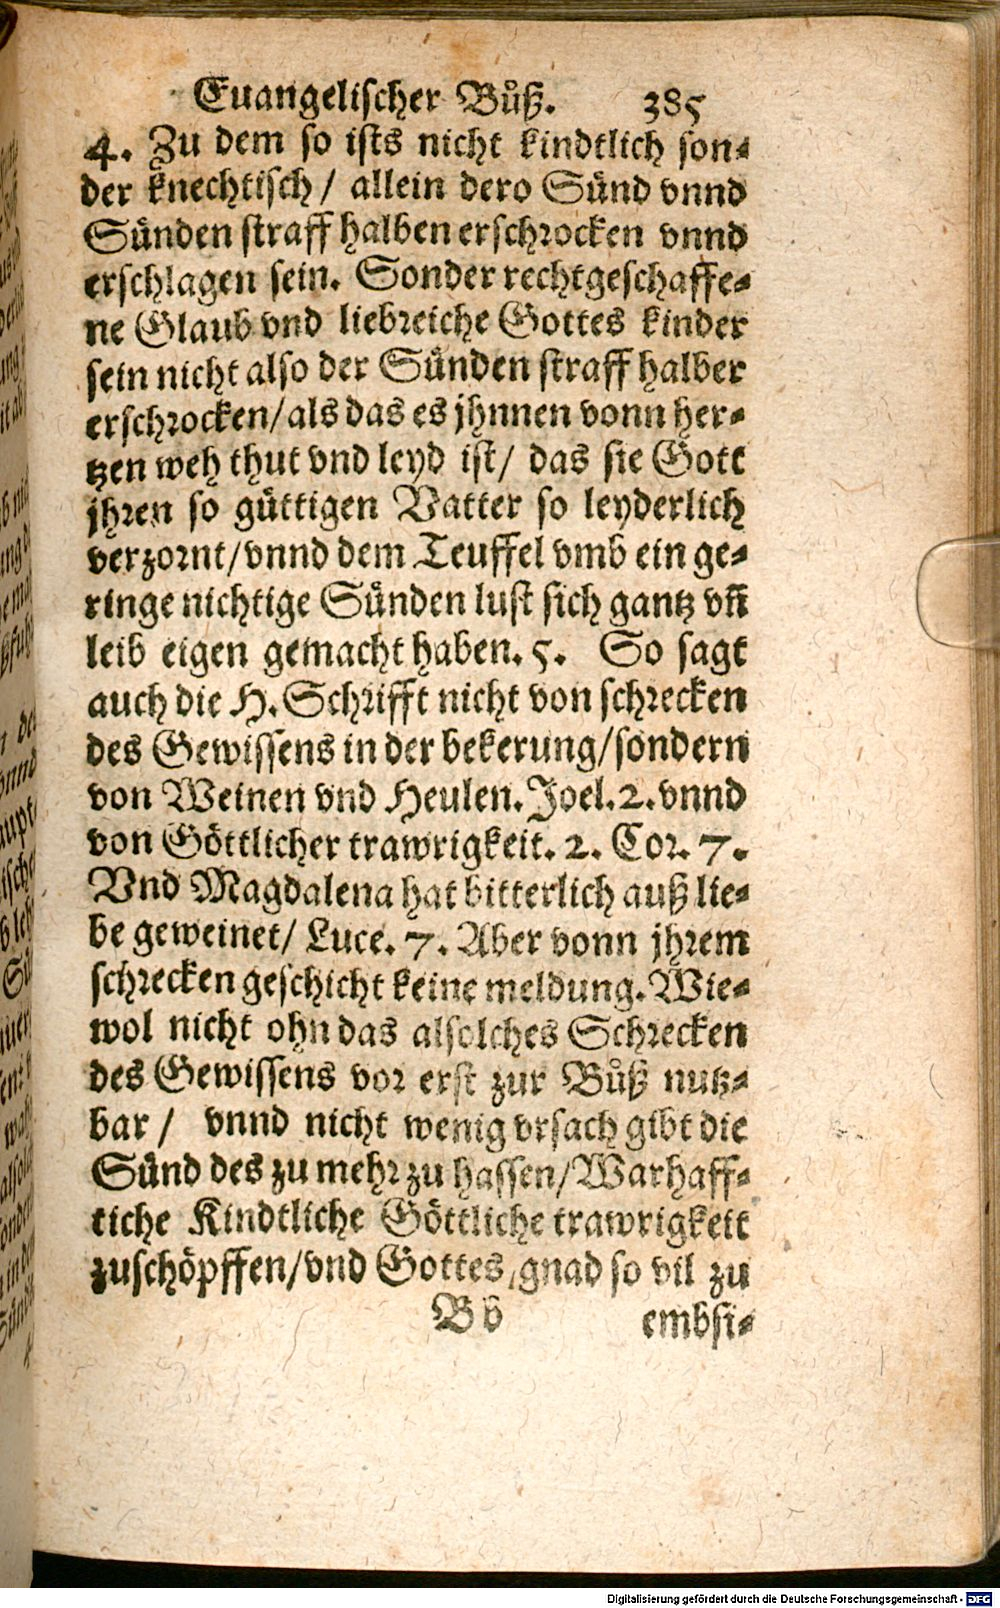 Euangelischer Bůß. 385
4. Zu dem so ists nicht kindtlich son-
der knechtisch/ allein dero Sünd vnnd
Sünden straff halben erschrocken vnnd
erschlagen sein. Sonder rechtgeschaffe-
ne Glaub vnd liebreiche Gottes kinder
sein nicht also der Sünden straff halber
erschrocken/als das es jhnnen vonn her-
tzen weh thut vnd leyd ist/ das sie Gott
jhren so güttigen Vatter so leyderlich
verzornt/vnnd dem Teuffel vmb ein ge-
ringe nichtige Sünden lust sich gantz vñ
leib eigen gemacht haben. 5. So sagt
auch die H. Schrifft nicht von schrecken
des Gewissens in der bekerung/sondern
von Weinen vnd Heulen. Joel. 2. vnnd
von Göttlicher trawrigkeit. 2. Cor. 7.
Vnd Magdalena hat bitterlich auß lie-
be geweinet/ Luce. 7. Aber vonn jhrem
schrecken geschicht keine meldung. Wie-
wol nicht ohn das alsolches Schrecken
des Gewissens vor erst zur Bůß nutz-
bar/ vnnd nicht wenig vrsach gibt die
Sünd des zu mehr zu hassen/Warhaff-
tiche Kindtliche Göttliche trawrigkeit
zuschöpffen/vnd Gottes gnad so vil zu
B b embsi-
Digitalisierung gefördert durch die Deutsche Forschungsgemeinschaft - DFG